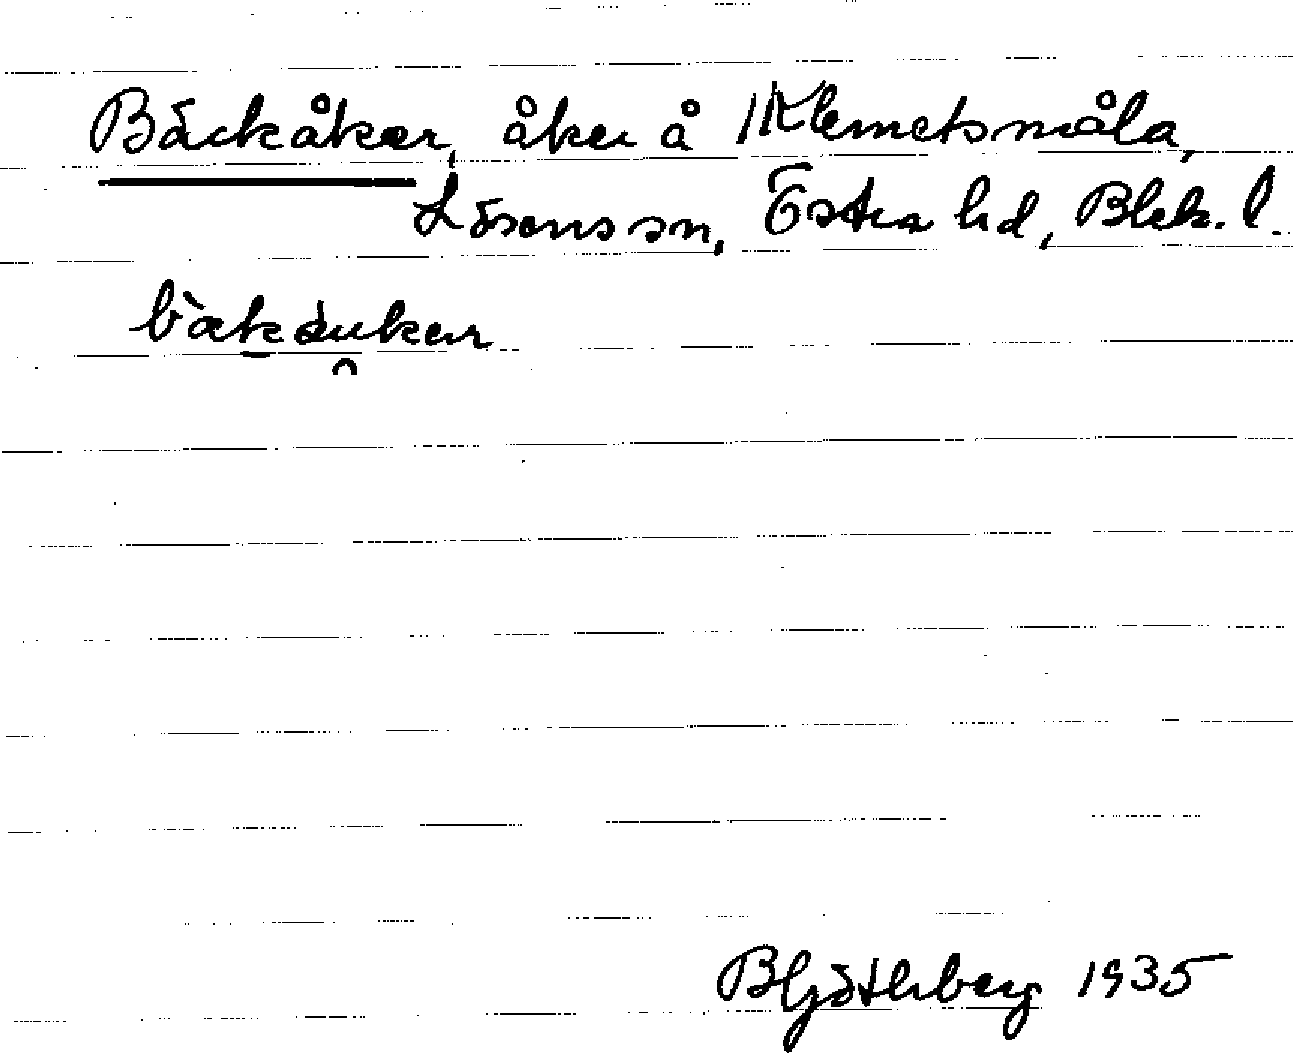 Bäckåker, åker å 1 Klemetsmåla,
Lösens sn, Östra hd, Blek. l.
Bj Göthberg 1935